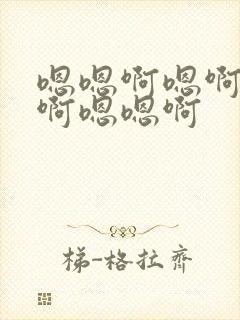 嗯嗯啊嗯啊
啊嗯嗯啊
梯-格拉齐